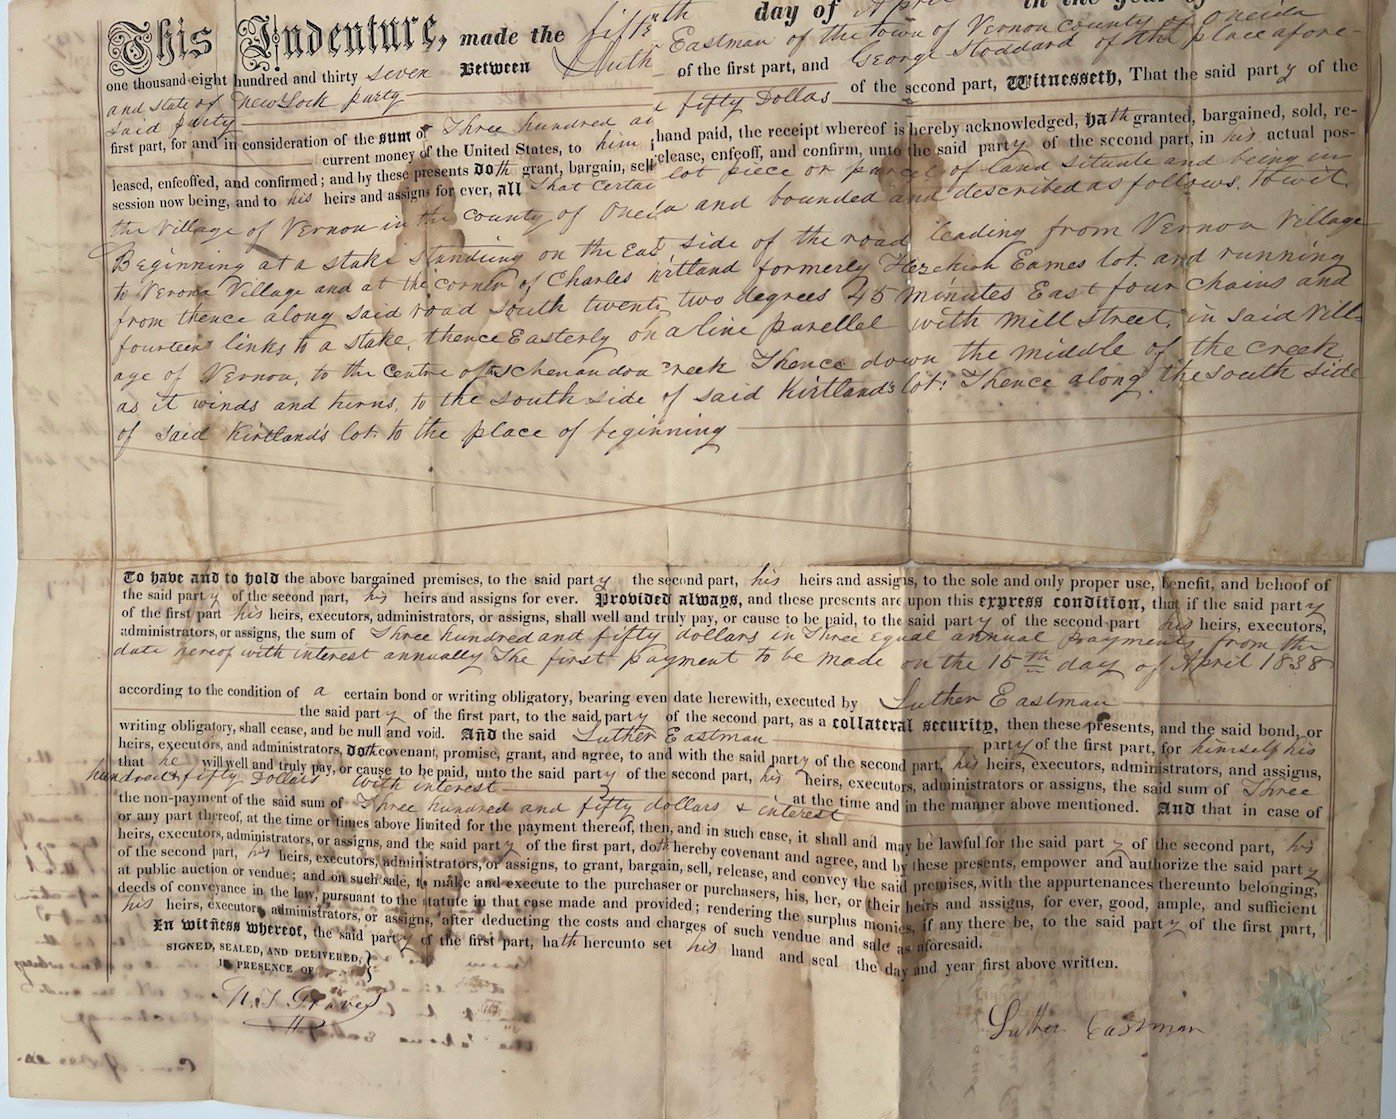 This Indenture, made the fifteenth day of April in the year of
one thousand eight hundred and thirty seven Between Luther Eastman of the town of Vernon County of Oneida
and State of New York party of the first part, and George Stoddard of the place afore-
said party of the second part, Witnesseth, That the said party of the
first part, for and in consideration of the sum of Three hundred and fifty Dollars
current money of the United States, to him in hand paid, the receipt whereof is hereby acknowledged, hath granted, bargained, sold, re-
leased, enfeoffed, and confirmed; and by these presents doth grant, bargain, sell, release, enfeoff, and confirm, unto the said party of the second part, in his actual pos-
session now being, and to his heirs and assigns for ever, all That certain lot piece or parcel of land situate and being in
the village of Vernon in the county of Oneida and bounded and described as follows. to wit.
Beginning at a stake standing on the East side of the road leading from Vernon Village
to Verona Village and at the corner of Charles Kirtland formerly Hezekiah Eames lot. and running
from thence along said road South twenty two degrees 45 minutes East four chains and
fourteen links to a stake, thence Easterly on a line parellel with Mill Street, in said Vill-
age of Vernon, to the centre of Schenandoa creek Thence down the middle of the creek,
as it winds and turns, to the south side of said Kirtland's lot; Thence along the South Side
of said Kirtland's lot to the place of beginning
To have and to hold the above bargained premises, to the said party the second part, his heirs and assigns, to the sole and only proper use, benefit, and behoof of
the said party of the second part, his heirs and assigns for ever. Provided always, and these presents are upon this express condition, that if the said party
of the first part his heirs, executors, administrators, or assigns, shall well and truly pay, or cause to be paid, to the said party of the second part his heirs, executors,
administrators, or assigns, the sum of Three hundred and fifty dollars in Three equal annual payments from the
date hereof with interest annually The first payment to be made on the 15th day of April 1838
according to the condition of a certain bond or writing obligatory, bearing even date herewith, executed by Luther Eastman
the said party of the first part, to the said party of the second part, as a collateral security, then these presents, and the said bond, or
writing obligatory, shall cease, and be null and void. And the said Luther Eastman party of the first part, for himself his
heirs, executors, and administrators, doth covenant, promise, grant, and agree, to and with the said party of the second part, his heirs, executors, administrators, and assigns,
that he will well and truly pay, or cause to be paid, unto the said party of the second part, his heirs, executors, administrators or assigns, the said sum of Three
hundred & fifty Dollars with interest at the time and in the manner above mentioned. And that in case of
the non-payment of the said sum of Three hundred and fifty dollars & interest
or any part thereof, at the time or times above limited for the payment thereof, then, and in such case, it shall and may be lawful for the said party of the second part, his
heirs, executors, administrators, or assigns, and the said party of the first part, doth hereby covenant and agree, and by these presents, empower and authorize the said party
of the second part, his heirs, executors, administrators, or assigns, to grant, bargain, sell, release, and convey the said premises, with the appurtenances thereunto belonging,
at public auction or vendue; and on such sale, to make and execute to the purchaser or purchasers, his, her, or their heirs and assigns, for ever, good, ample, and sufficient
deeds of conveyance in the law, pursuant to the statute in that case made and provided; rendering the surplus monies, if any there be, to the said party of the first part,
his heirs, executors, administrators, or assigns, after deducting the costs and charges of such vendue and sale as aforesaid.
In witness whereof, the said party of the first part, hath hereunto set his hand and seal the day and year first above written.
SIGNED, SEALED, AND DELIVERED,
IN PRESENCE OF
Luther Eastman